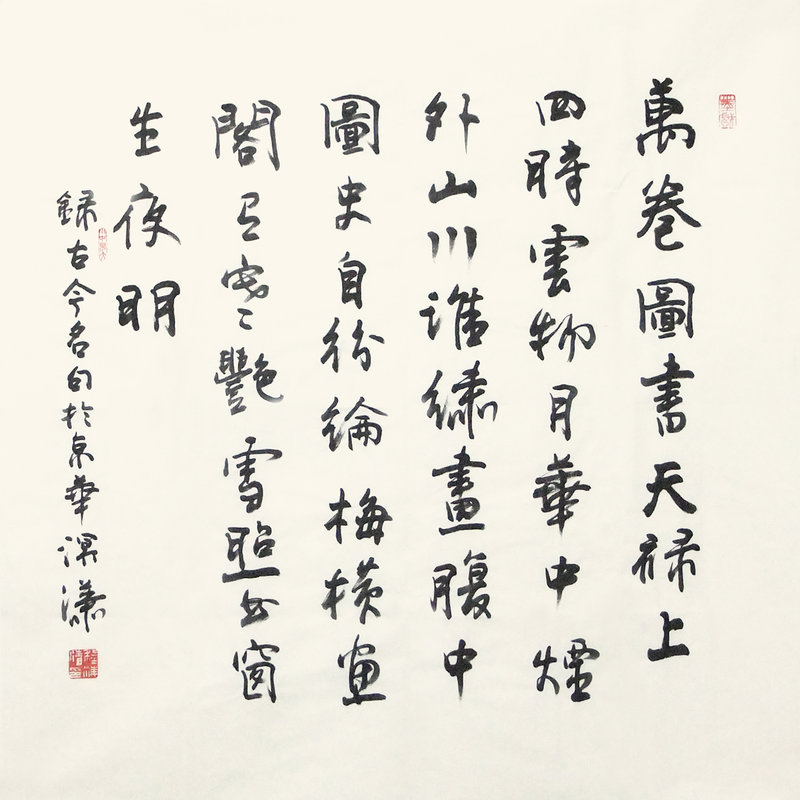 萬卷圖書天祿上
四時雲物月華中煙
外山川誰繡畫腹中
圖史自紛綸梅橫畫
閣有寒艷雪照書窗
生夜明
錄古今名句於京華